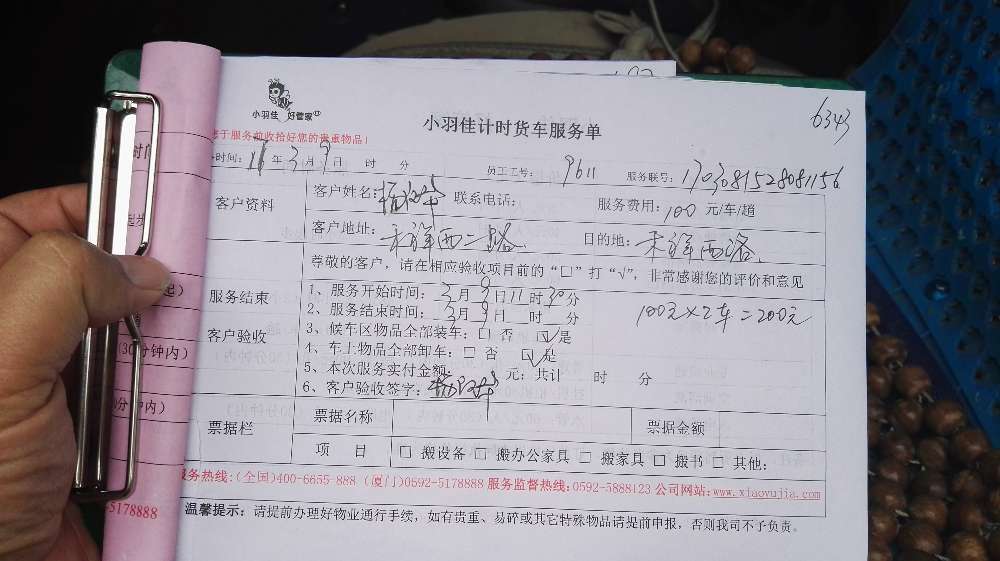 小羽佳 好管家
小羽佳计时货车服务单
6343
于服务前收拾好您的贵重物品!
时间: 年3月9日 时 分 员工工号: 9611 服务联号: 1703081528081156
客户资料
客户姓名: 联系电话: 服务费用: 100 元/车/趟
客户地址: 禾祥西二路 目的地: 禾祥西路
尊敬的客户,请在相应验收项目前的“□”打“√”,非常感谢您的评价和意见
服务结束
客户验收
1、服务开始时间: 3月9日11时30分
100元×2车=200元
2、服务结束时间: 3月9日 时 分
3、候车区物品全部装车: □ 否 ☑是
4、车上物品全部卸车: □ 否 ☑是
5、本次服务实付金额: 元; 共计 时 分
6、客户验收签字:
票据栏
票据名称 票据金额
项 目 □ 搬设备 □ 搬办公家具 □ 搬家具 □ 搬书 □ 其他:
服务热线:(全国)400-6655-888 (厦门)0592-5178888 服务监督热线:0592-5888123 公司网站:www.xiaoyujia.com
温馨提示: 请提前办理好物业通行手续,如有贵重、易碎或其它特殊物品请提前申报,否则我司不予负责。
时间
起步
起)
(30分钟内)
0分钟内)
5178888